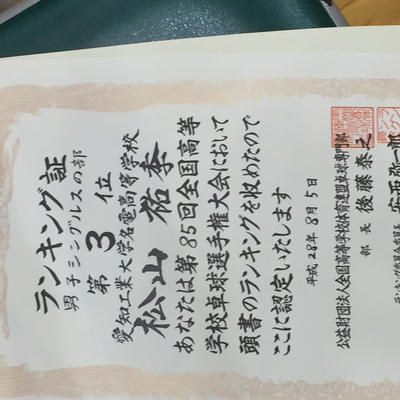 ランキング証
男子シングルスの部
第3位
愛知工業大学名電高等学校
松山祐季
あなたは第85回全国高等
学校卓球選手権大会において
頭書のランキングを収めたので
ここに認定いたします
平成28年8月5日
公益財団法人全国高等学校体育連盟卓球専門部
部長 後藤泰之